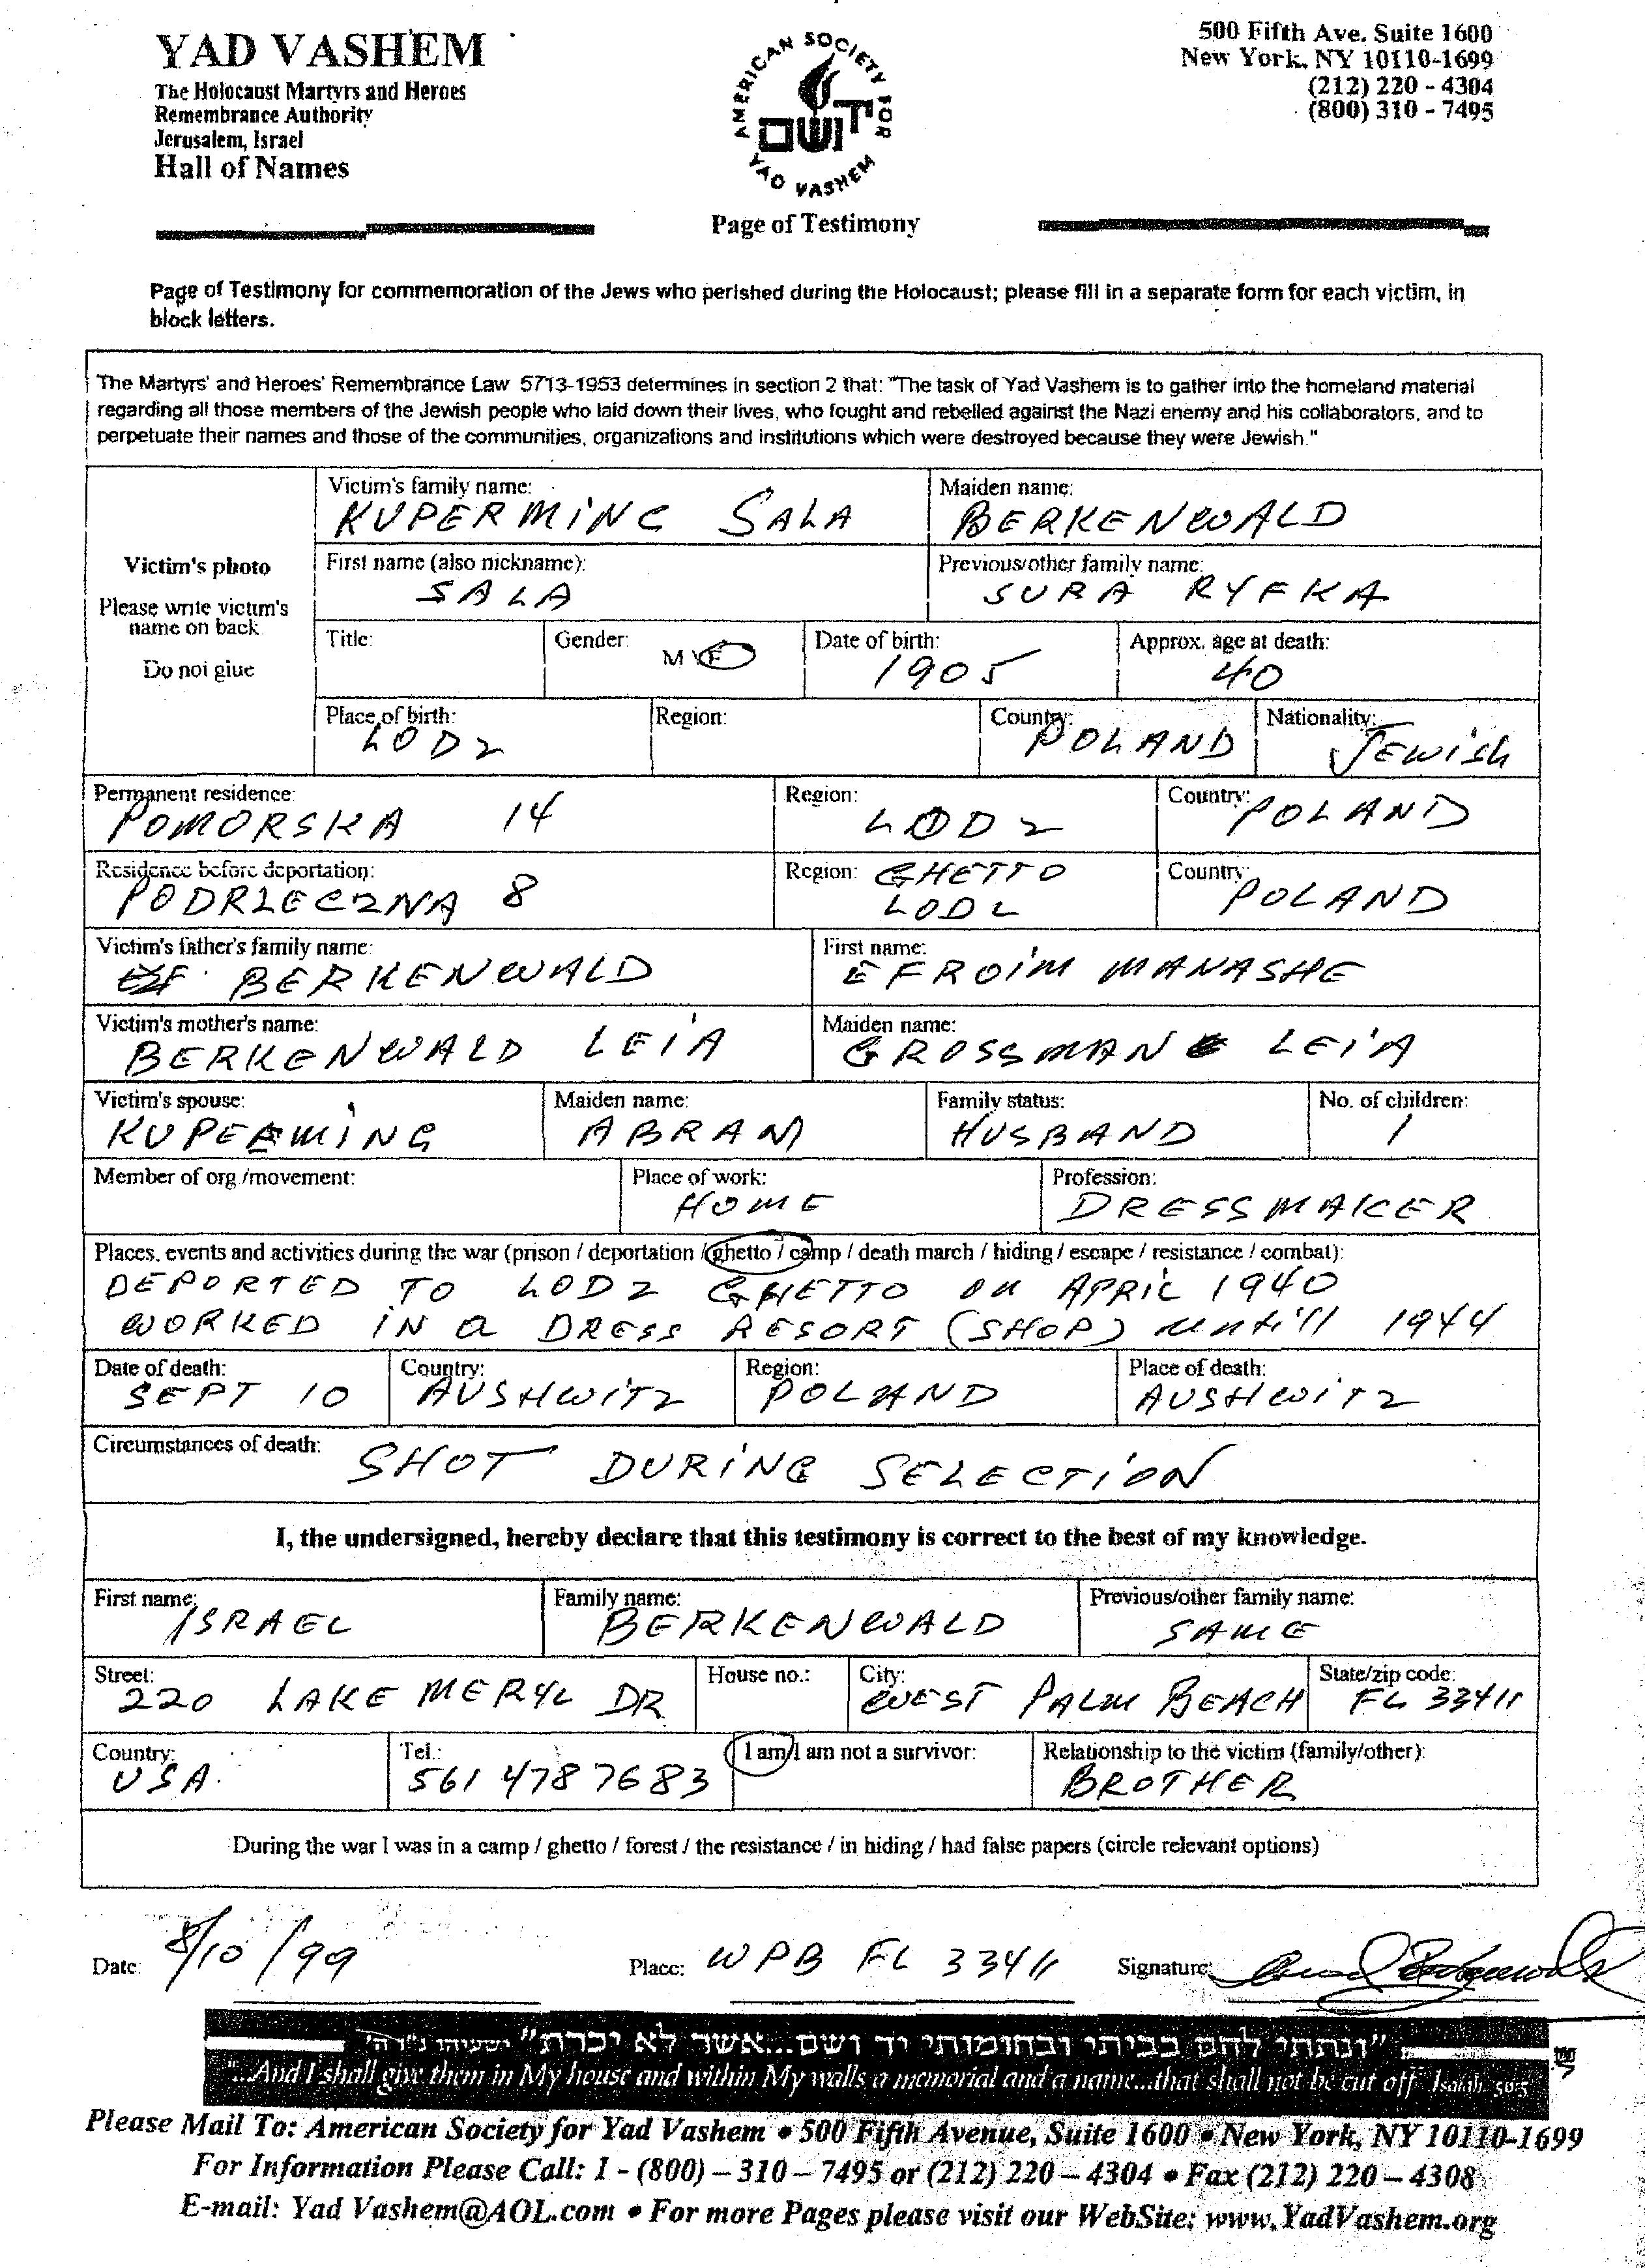 YAD VASHEM
The Holocaust Martyrs and Heroes
Remembrance Authority
Jerusalem, Israel
Hall of Names
AMERICAN SOCIETY FOR
יד ושם
YAD VASHEM
Page of Testimony
500 Fifth Ave. Suite 1600
New York, NY 10110-1699
(212) 220 - 4304
(800) 310 - 7495
Page of Testimony for commemoration of the Jews who perished during the Holocaust; please fill in a separate form for each victim, in
block letters.
The Martyrs' and Heroes' Remembrance Law 5713-1953 determines in section 2 that: "The task of Yad Vashem is to gather into the homeland material
regarding all those members of the Jewish people who laid down their lives, who fought and rebelled against the Nazi enemy and his collaborators, and to
perpetuate their names and those of the communities, organizations and institutions which were destroyed because they were Jewish."
Victim's photo
Please write victim's
name on back
Do not glue
Victim's family name: Maiden name:
KUPERMINC SALA BERKENWALD
First name (also nickname): Previous/other family name:
SALA SURA RYFKA
Title: Gender: M / F Date of birth: Approx. age at death:
1905 40
Place of birth: Region: Country: Nationality:
LODZ POLAND JEWISH
Permanent residence: Region: Country:
POMORSKA 14 LODZ POLAND
Residence before deportation: Region: GHETTO Country:
PODRZECZNA 8 LODZ POLAND
Victim's father's family name: First name:
BERKENWALD EFROIM MANASHE
Victim's mother's name: Maiden name:
BERKENWALD LEIA GROSSMAN LEIA
Victim's spouse: Maiden name: Family status: No. of children:
KUPERMING ABRAM HUSBAND 1
Member of org /movement: Place of work: Profession:
HOME DRESSMAKER
Places, events and activities during the war (prison / deportation / ghetto / camp / death march / hiding / escape / resistance / combat):
DEPORTED TO LODZ GHETTO ON APRIL 1940
WORKED IN A DRESS RESORT (SHOP) untill 1944
Date of death: Country: Region: Place of death:
SEPT 10 AUSHWITZ POLAND AUSHWITZ
Circumstances of death: SHOT DURING SELECTION
I, the undersigned, hereby declare that this testimony is correct to the best of my knowledge.
First name: Family name: Previous/other family name:
ISRAEL BERKENWALD SAME
Street: House no.: City: State/zip code:
220 LAKE MERYL DR WEST PALM BEACH FL 33411
Country: Tel.: I am/I am not a survivor: Relationship to the victim (family/other):
USA. 561 478 7683 BROTHER
During the war I was in a camp / ghetto / forest / the resistance / in hiding / had false papers (circle relevant options)
Date: 8/10/99 Place: WPB FL 33411 Signature:
"ונתתי להם בביתי ובחומותי יד ושם...אשר לא יכרת" ישעיהו נ"ו ה'
"...And I shall give them in My house and within My walls a memorial and a name...that shall not be cut off" Isaiah 56:5
Please Mail To: American Society for Yad Vashem • 500 Fifth Avenue, Suite 1600 • New York, NY 10110-1699
For Information Please Call: 1 - (800) – 310 – 7495 or (212) 220 – 4304 • Fax (212) 220 – 4308
E-mail: Yad Vashem@AOL.com • For more Pages please visit our WebSite: www.YadVashem.org